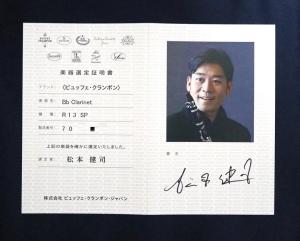 楽器選定証明書
ブランド: 〈ビュッフェ・クランポン〉
楽器名: Bb Clarinet
機種: R13 SP
製造番号: 70
上記の楽器を確かに選定いたしました。
選定者: 松本 健司
株式会社 ビュッフェ・クランポン・ジャパン
署名